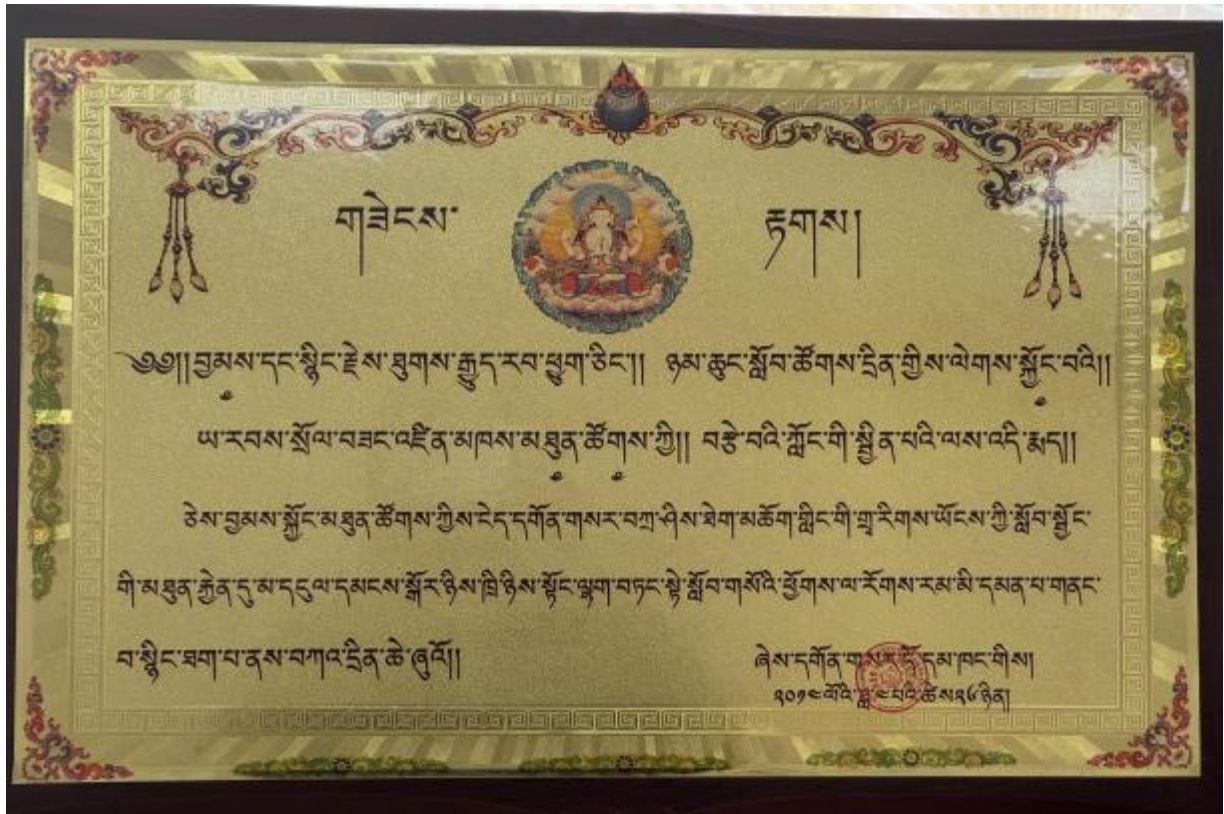 གཟེངས་ རྟགས།
༄༅།།བྱམས་དང་སྙིང་རྗེས་ཐུགས་རྒྱུད་རབ་ཕྱུག་ཅིང་།། ཉམ་ཆུང་སློབ་ཚོགས་དྲིན་གྱིས་ལེགས་སྐྱོང་བའི།།
ཡ་རབས་སྲོལ་བཟང་འཛིན་མཁས་མཐུན་ཚོགས་ཀྱི།། བརྩེ་བའི་ཀློང་གི་སྦྱིན་པའི་ལས་འདི་རྨད།།
ཅེས་བྱམས་སྐྱོང་མཐུན་ཚོགས་ཀྱིས་ངེད་དགོན་གསར་བཀྲ་ཤིས་ཐེག་མཆོག་གླིང་གི་གྲྭ་རིགས་ཡོངས་ཀྱི་སློབ་སྦྱོང་
གི་མཐུན་རྐྱེན་དུ་མ་དངུལ་དམངས་སྒོར་ཉིས་ཁྲི་ཉིས་སྟོང་ལྷག་བཏང་སྟེ་སློབ་གསོའི་ཕྱོགས་ལ་རོགས་རམ་མི་དམན་པ་གནང་
བ་སྙིང་ཐག་པ་ནས་བཀའ་དྲིན་ཆེ་ཞུའོ།།
ཞེས་དགོན་གསར་དོ་དམ་ཁང་གིས།
༢༠༡༤ལོའི་ཟླ་༤པའི་ཚེས༢༦ཉིན།